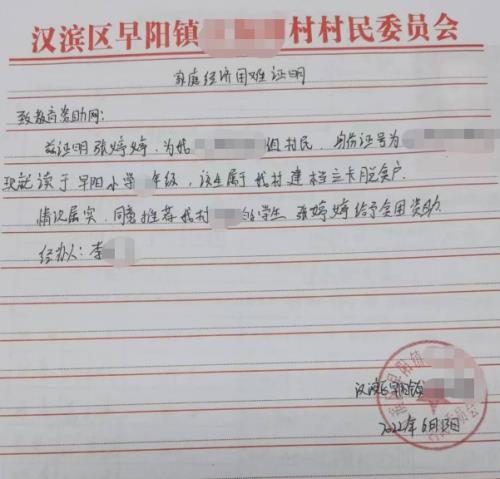 汉滨区早阳镇 村村民委员会
家庭经济困难证明
致教育资助网：
兹证明张婷婷，为我 组村民，身份证号为
现就读于早阳小学 年级，该生属于我村建档立卡脱贫户。
情况属实，同意推荐我村 的学生 张婷婷给予全困资助.
经办人：李
汉滨区早阳镇
2022年6月 日